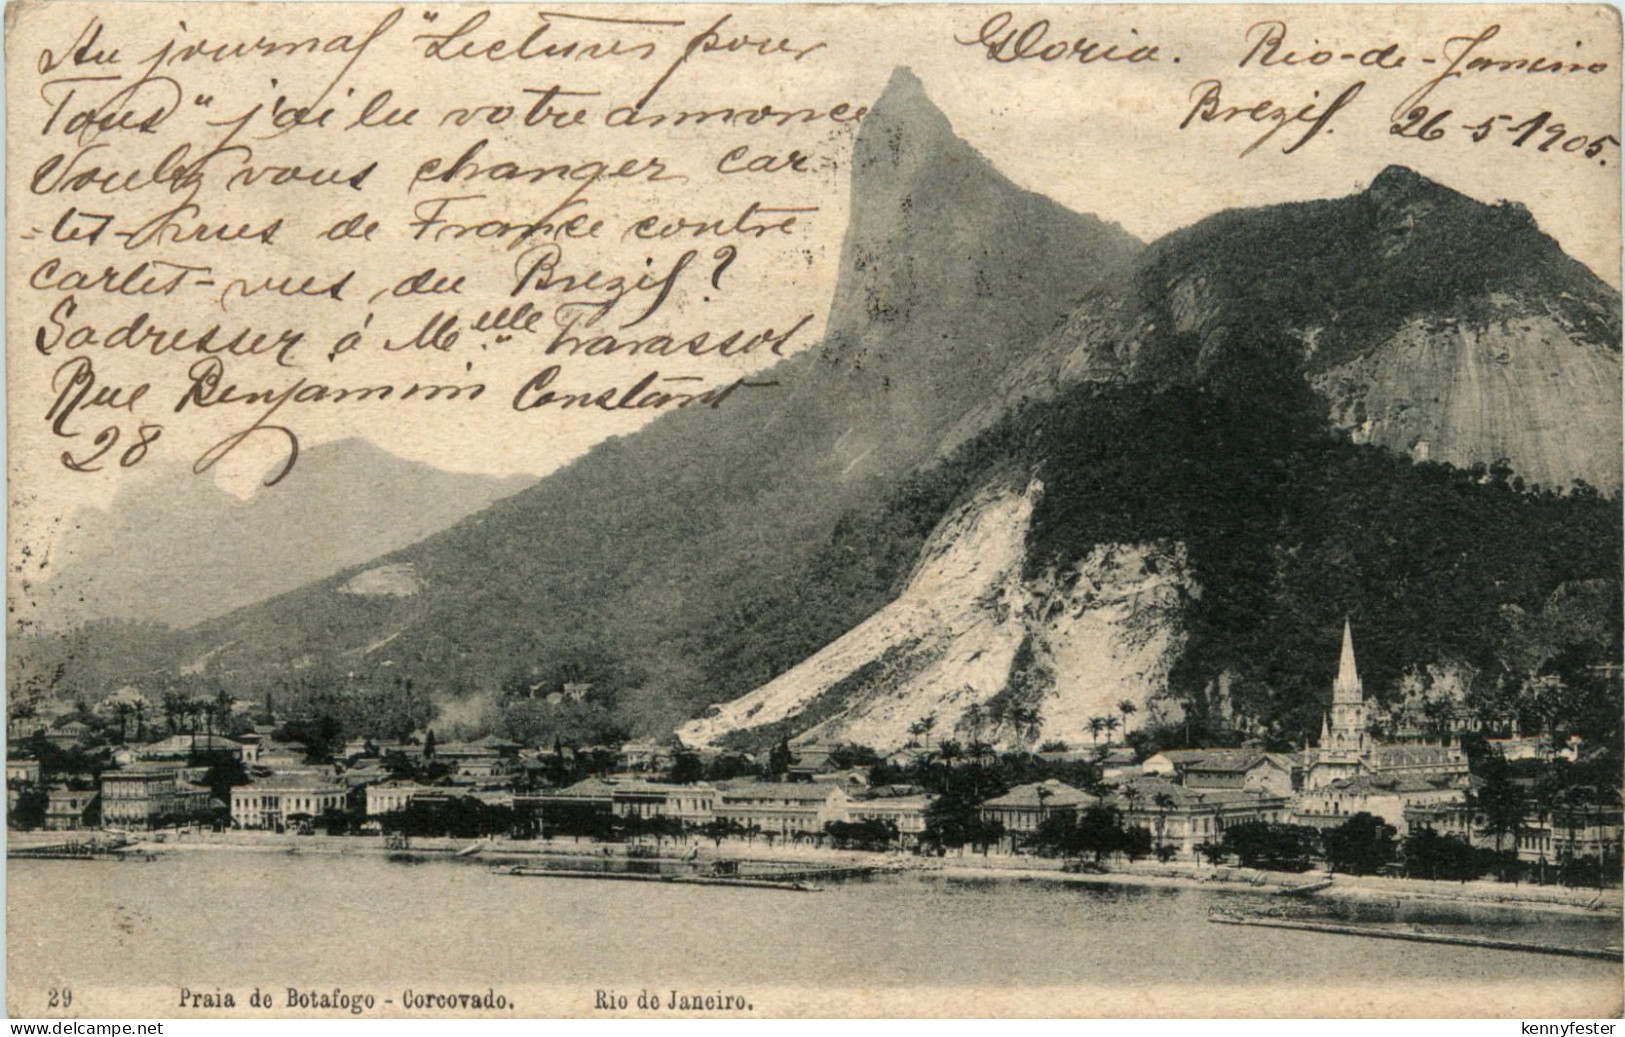 Au journal "Lectures pour
Tous" j'ai lu votre annonce
Voulez vous changer car-
-tes-vues de France contre
cartes-vues du Brezil?
S'adresser á Melle Travassos
Rue Benjamim Constant
28
Gloria. Rio-de-Janeiro
Brezil. 26-5-1905.
29 Praia de Botafogo - Corcovado. Rio de Janeiro.
www.delcampe.net
kennyfester